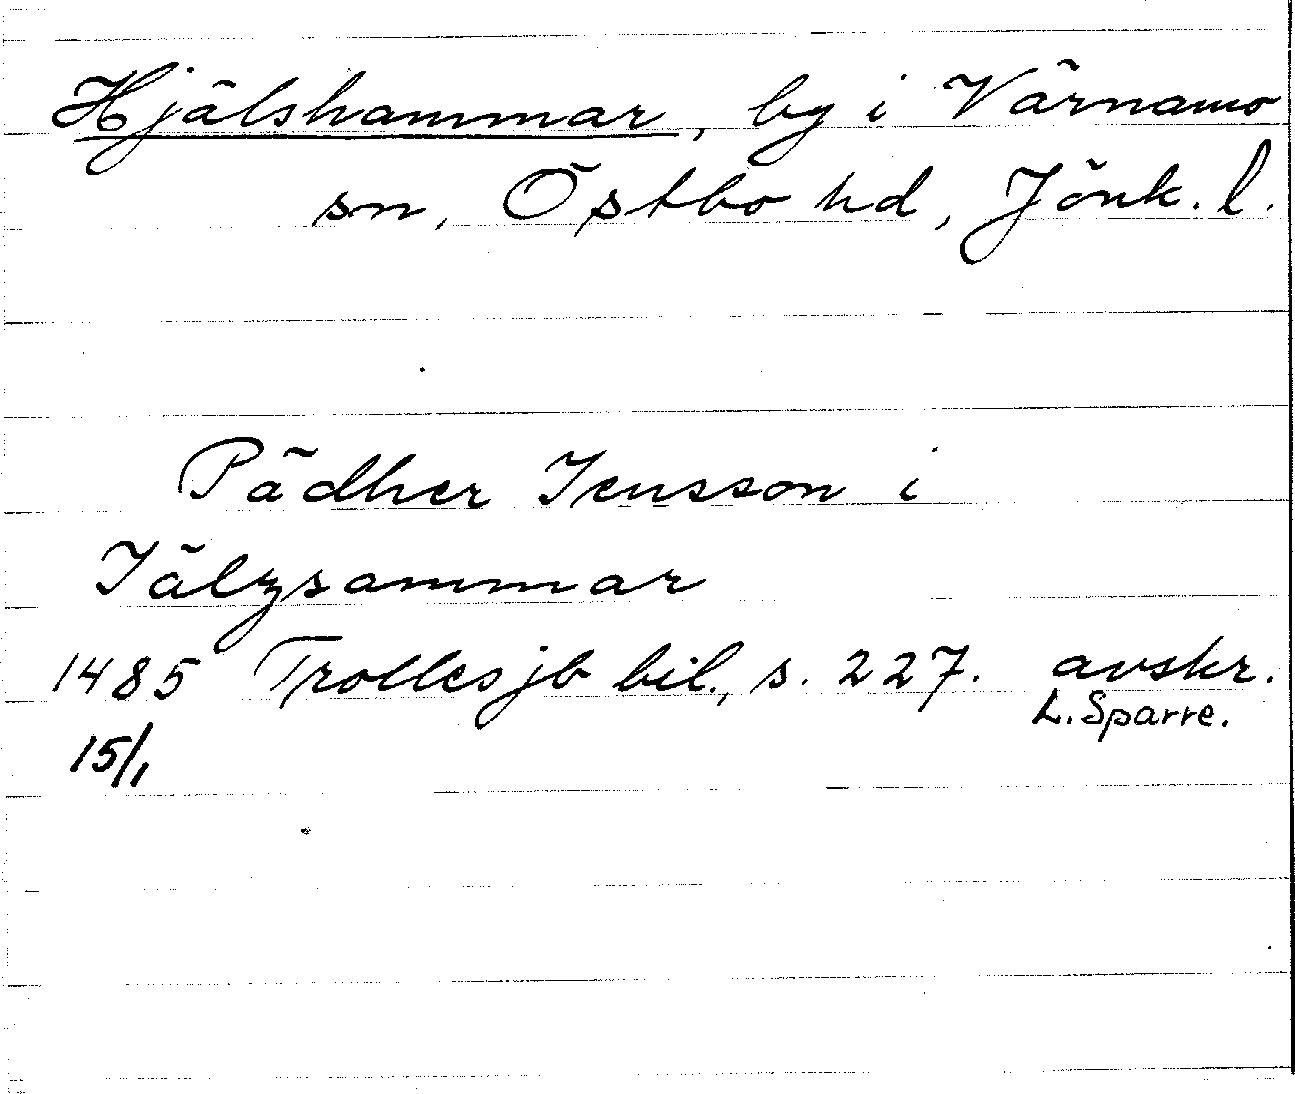 Hjälshammar, by i Värnamo
sn, Östbo hd, Jönk. l.
Pädher Jensson i
Jälzsammar
1485 Trolles jb bil., s. 227. avskr.
L. Sparre.
15/1